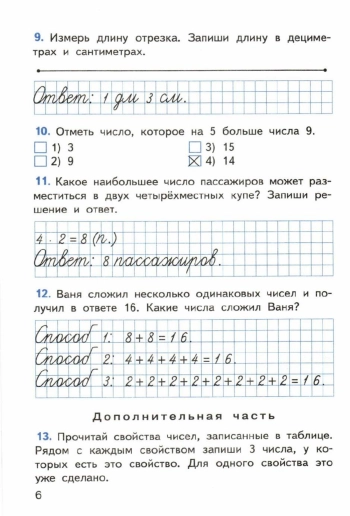 9. Измерь длину отрезка. Запиши длину в дециме-
трах и сантиметрах.
Ответ: 1 дм 3 см.
10. Отметь число, которое на 5 больше числа 9.
1) 3
3) 15
2) 9
4) 14
11. Какое наибольшее число пассажиров может раз-
меститься в двух четырёхместных купе? Запиши ре-
шение и ответ.
4 · 2 = 8 (п.)
Ответ: 8 пассажиров.
12. Ваня сложил несколько одинаковых чисел и по-
лучил в ответе 16. Какие числа сложил Ваня?
Способ 1: 8 + 8 = 16.
Способ 2: 4 + 4 + 4 + 4 = 16.
Способ 3: 2 + 2 + 2 + 2 + 2 + 2 + 2 + 2 = 16.
Дополнительная часть
13. Прочитай свойства чисел, записанные в таблице.
Рядом с каждым свойством запиши 3 числа, у ко-
торых есть это свойство. Для одного свойства это
уже сделано.
6